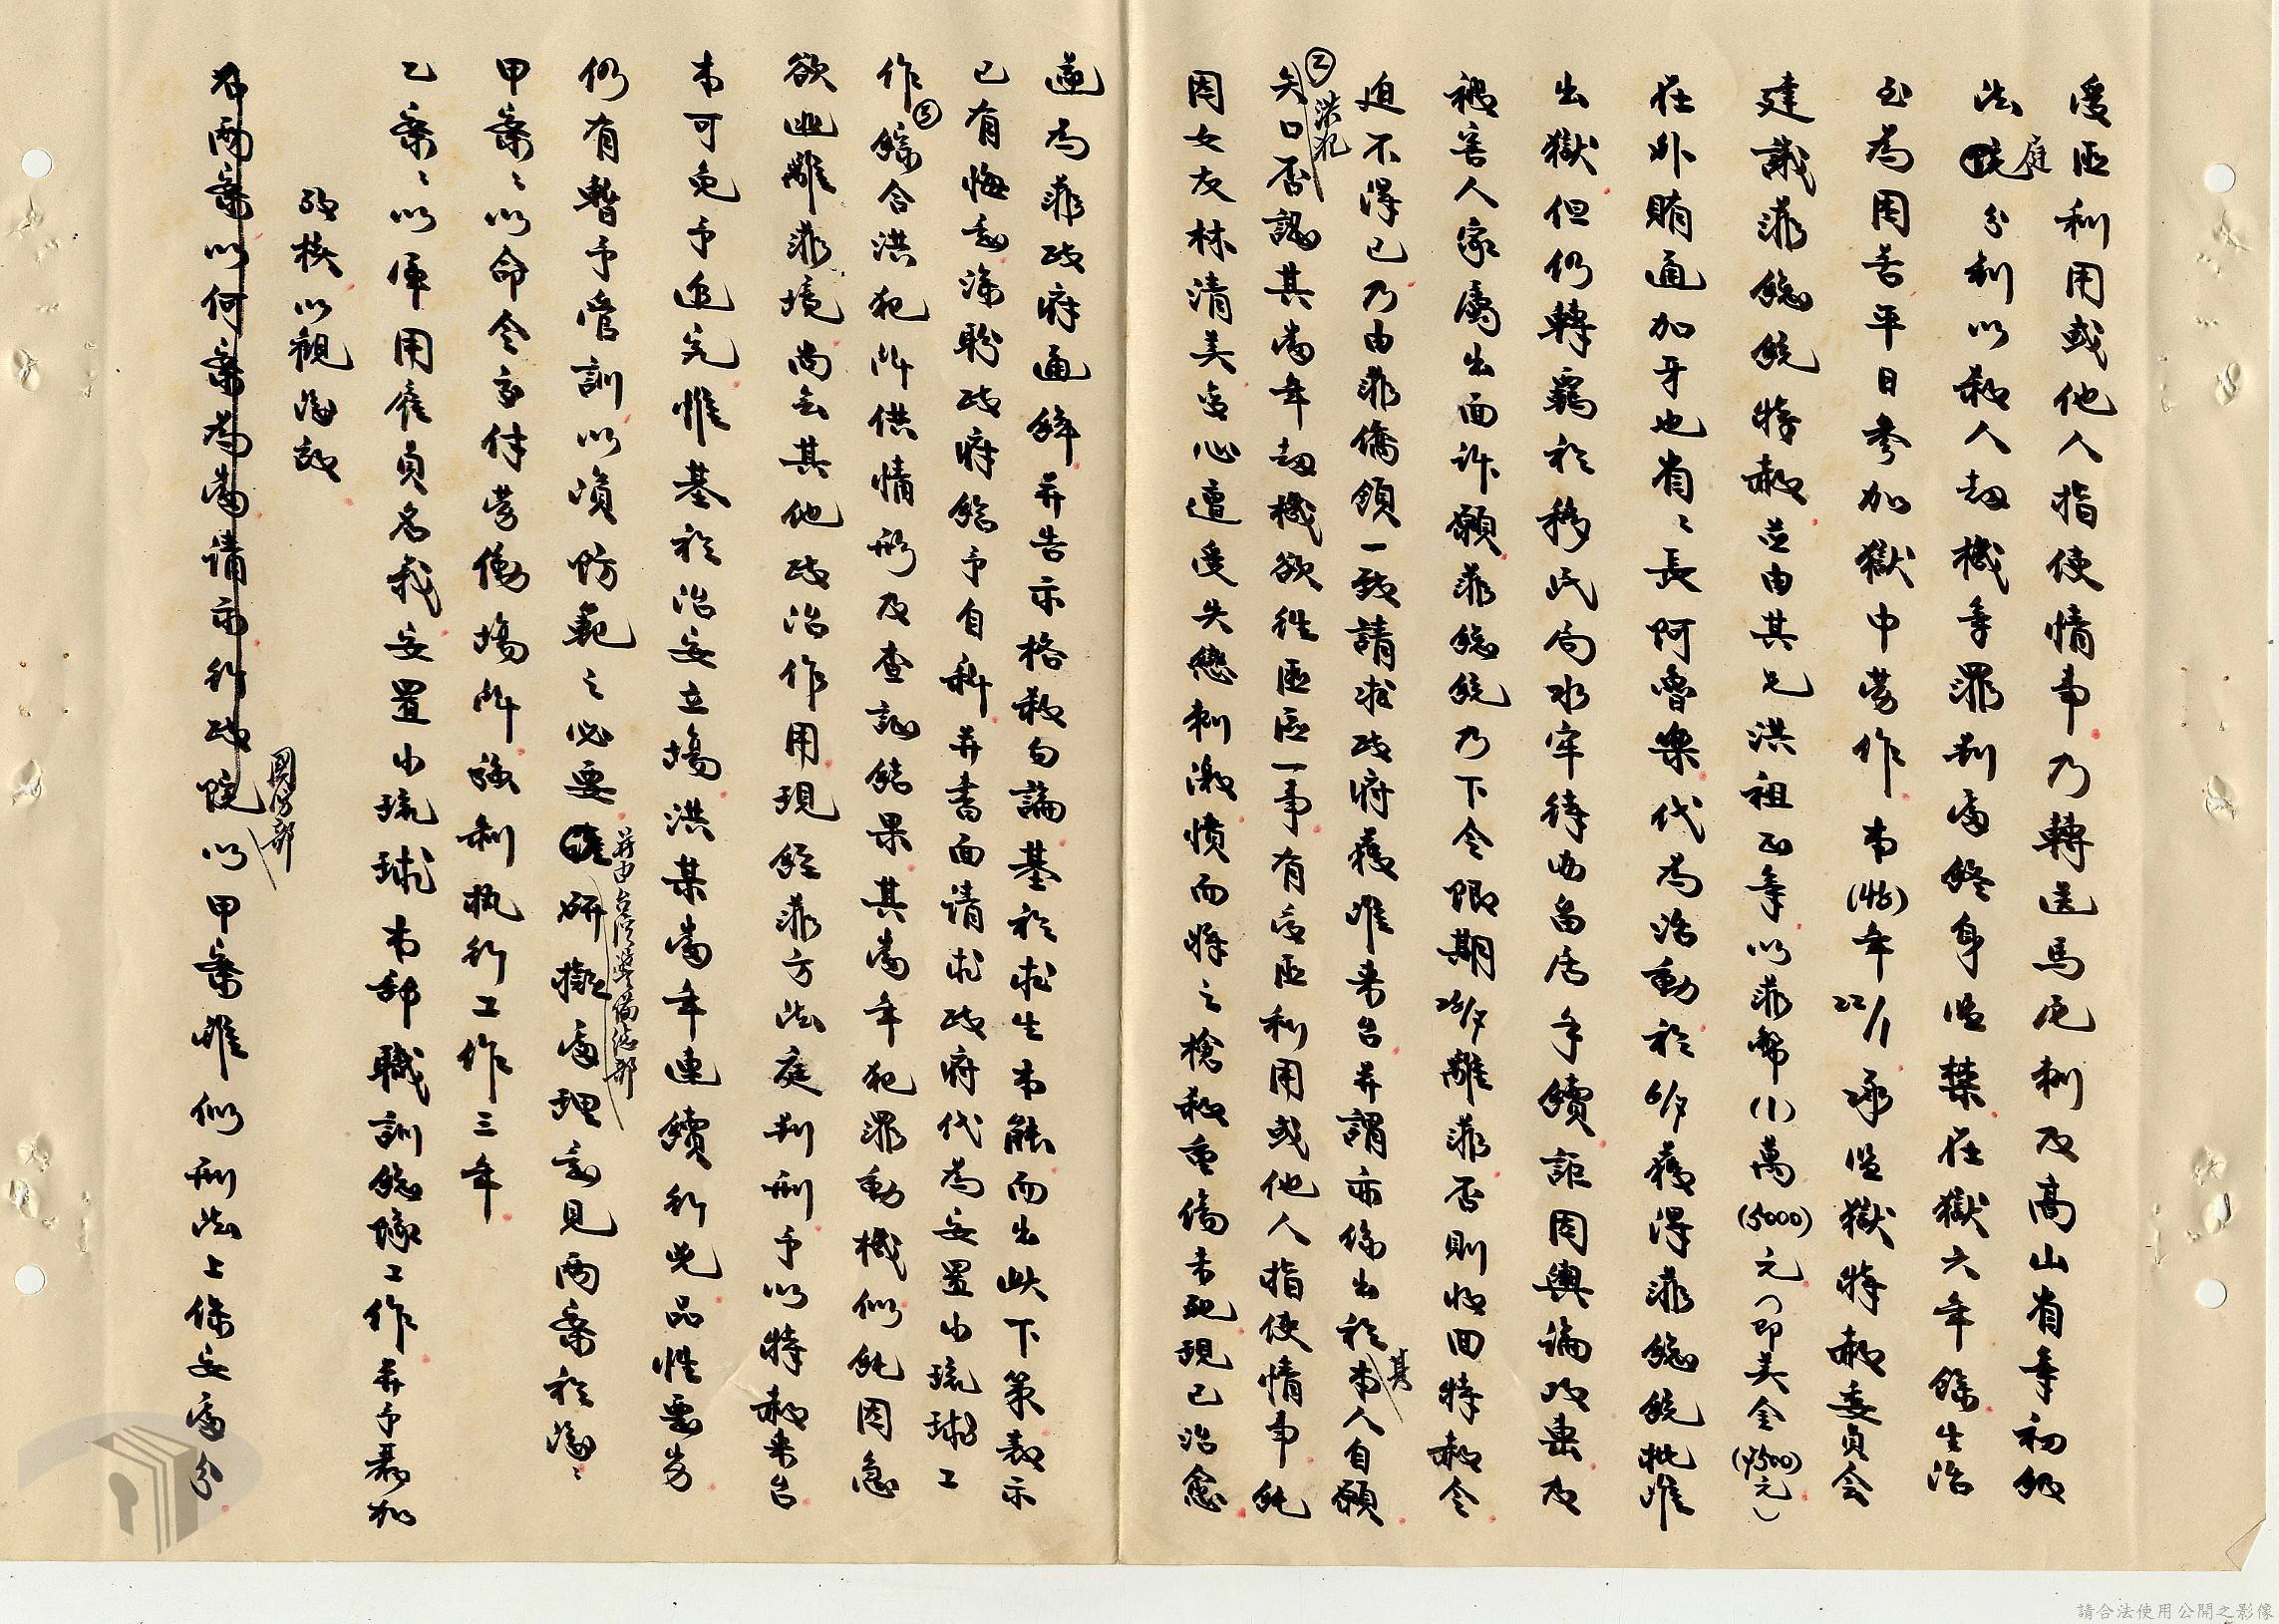 受匪利用或他人指使情事乃轉送馬尼剌及高山省手初級
法庭分別以殺人刧機等罪判處終身監禁在獄六年餘生活
至為困苦平日參加獄中勞作本(45)年22/1承監獄特赦委員會
建議菲總統特赦並由其兄洪祖　年以菲幣(1)萬(5000)元(即美金(7500)元)
在外賄通加牙也省省長阿魯樂代為活動於　獲得菲總統批准
出獄但仍轉羈於移民局水牢待辦居留手續詎因輿論攻擊及
被害人家屬出面訴願菲總統乃下令限期　離菲否則收回特赦令
迫不得已乃由菲僑領一致請求政府獲准來台并謂亦係出於其人自願
②洪犯否認其當年刧機欲往匪區一事有受匪利用或他人指使情事純
因女友林清美變心遭受失戀刺激憤而將之槍殺重傷未死現已治愈
遂為菲政府通緝并告示格殺勿論基於求生本能而出此下策表示
已有悔意深盼政府給予自新并書面請求政府代為安置小琉球工
作③綜合洪犯所供情形及查證結果其當年犯罪動機似純因急
欲逃離菲境尚無其他政治作用現經菲方法庭判刑予以特赦來台
本可免予追究惟基於治安立場洪某當年連續行兇品性惡劣
仍有暫予管訓以資防範之必要并由台灣警備總部研擬處理意見兩案於後：
甲案：以命令交付勞働場所強制執行工作三年
乙案：以軍用雇員名義安置小琉球本部職訓總隊工作并予看加
改核以觀後效
右兩案以何案為當請示行政院國防部以甲案唯似刑法上保安處分
請合法使用公開之影像